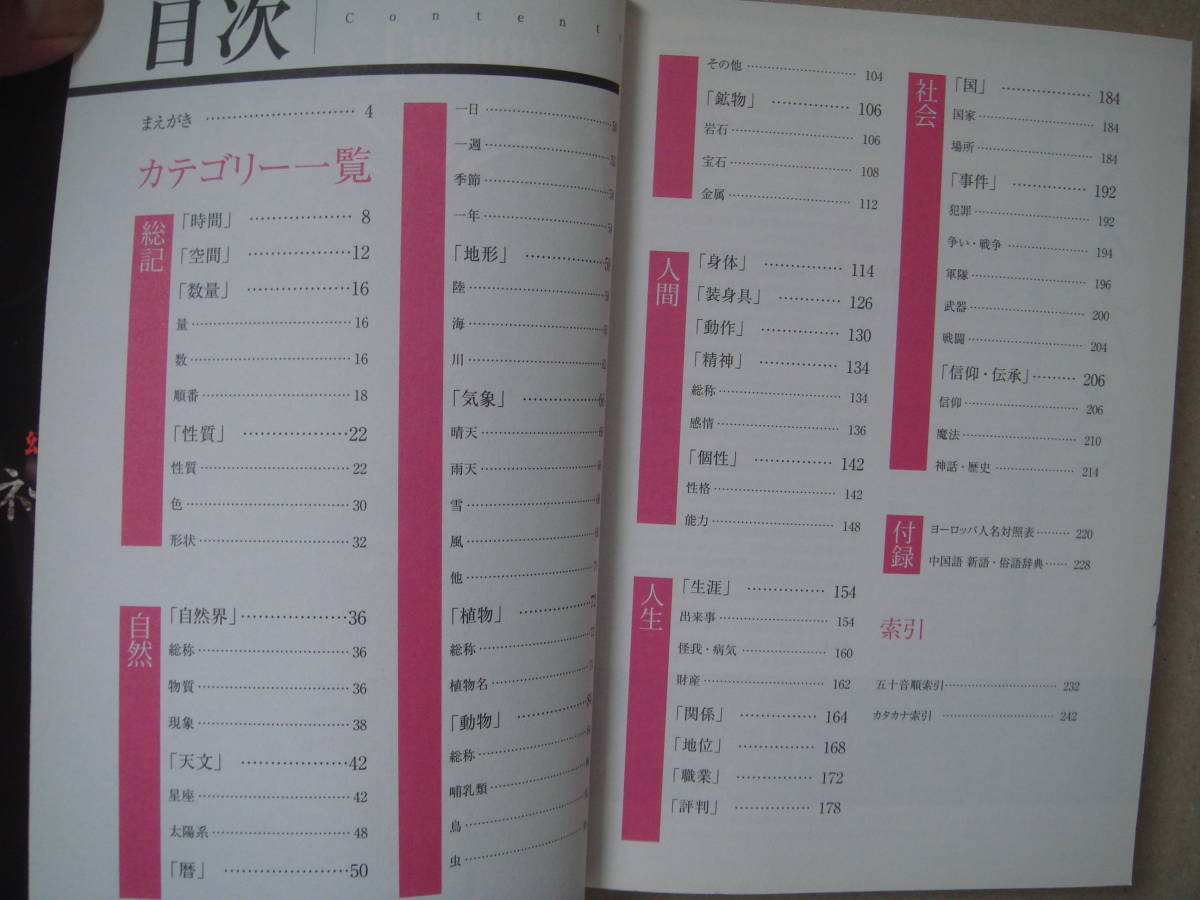 目次
Content
まえがき 4
カテゴリー一覧
総記
「時間」 8
「空間」 12
「数量」 16
量 16
数 16
順番 18
「性質」 22
性質 22
色 30
形状 32
自然
「自然界」 36
総称 36
物質 36
現象 38
「天文」 42
星座 42
太陽系 48
「暦」 50
一日 50
一週 52
季節 54
一年
「地形」
陸
海
川
「気象」
晴天
雨天
雪
風
他
「植物」
総称
植物名
「動物」
総称
哺乳類
鳥
虫
その他 104
「鉱物」 106
岩石 106
宝石 108
金属 112
人間
「身体」 114
「装身具」 126
「動作」 130
「精神」 134
総称 134
感情 136
「個性」 142
性格 142
能力 148
人生
「生涯」 154
出来事 154
怪我・病気 160
財産 162
「関係」 164
「地位」 168
「職業」 172
「評判」 178
社会
「国」 184
国家 184
場所 184
「事件」 192
犯罪 192
争い・戦争 194
軍隊 196
武器 200
戦闘 204
「信仰・伝承」 206
信仰 206
魔法 210
神話・歴史 214
付録
ヨーロッパ人名対照表 220
中国語 新語・俗語辞典 228
索引
五十音順索引 232
カタカナ索引 242